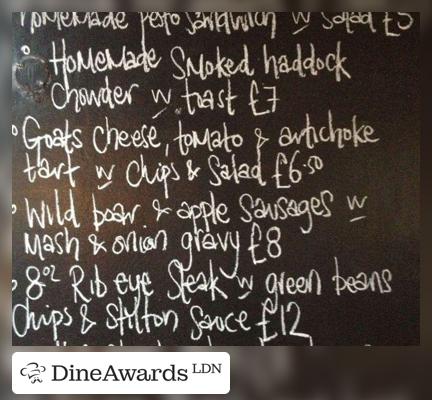 Homemade Pesto Sandwich w Salad £5
• Homemade Smoked haddock
Chowder w toast £7
• Goats cheese, tomato & artichoke
tart w Chips & Salad £6.50
• Wild boar & apple Sausages w
Mash & onion gravy £8
• 8oz Rib eye Steak w green beans
Chips & Stilton Sauce £12
DineAwards LDN